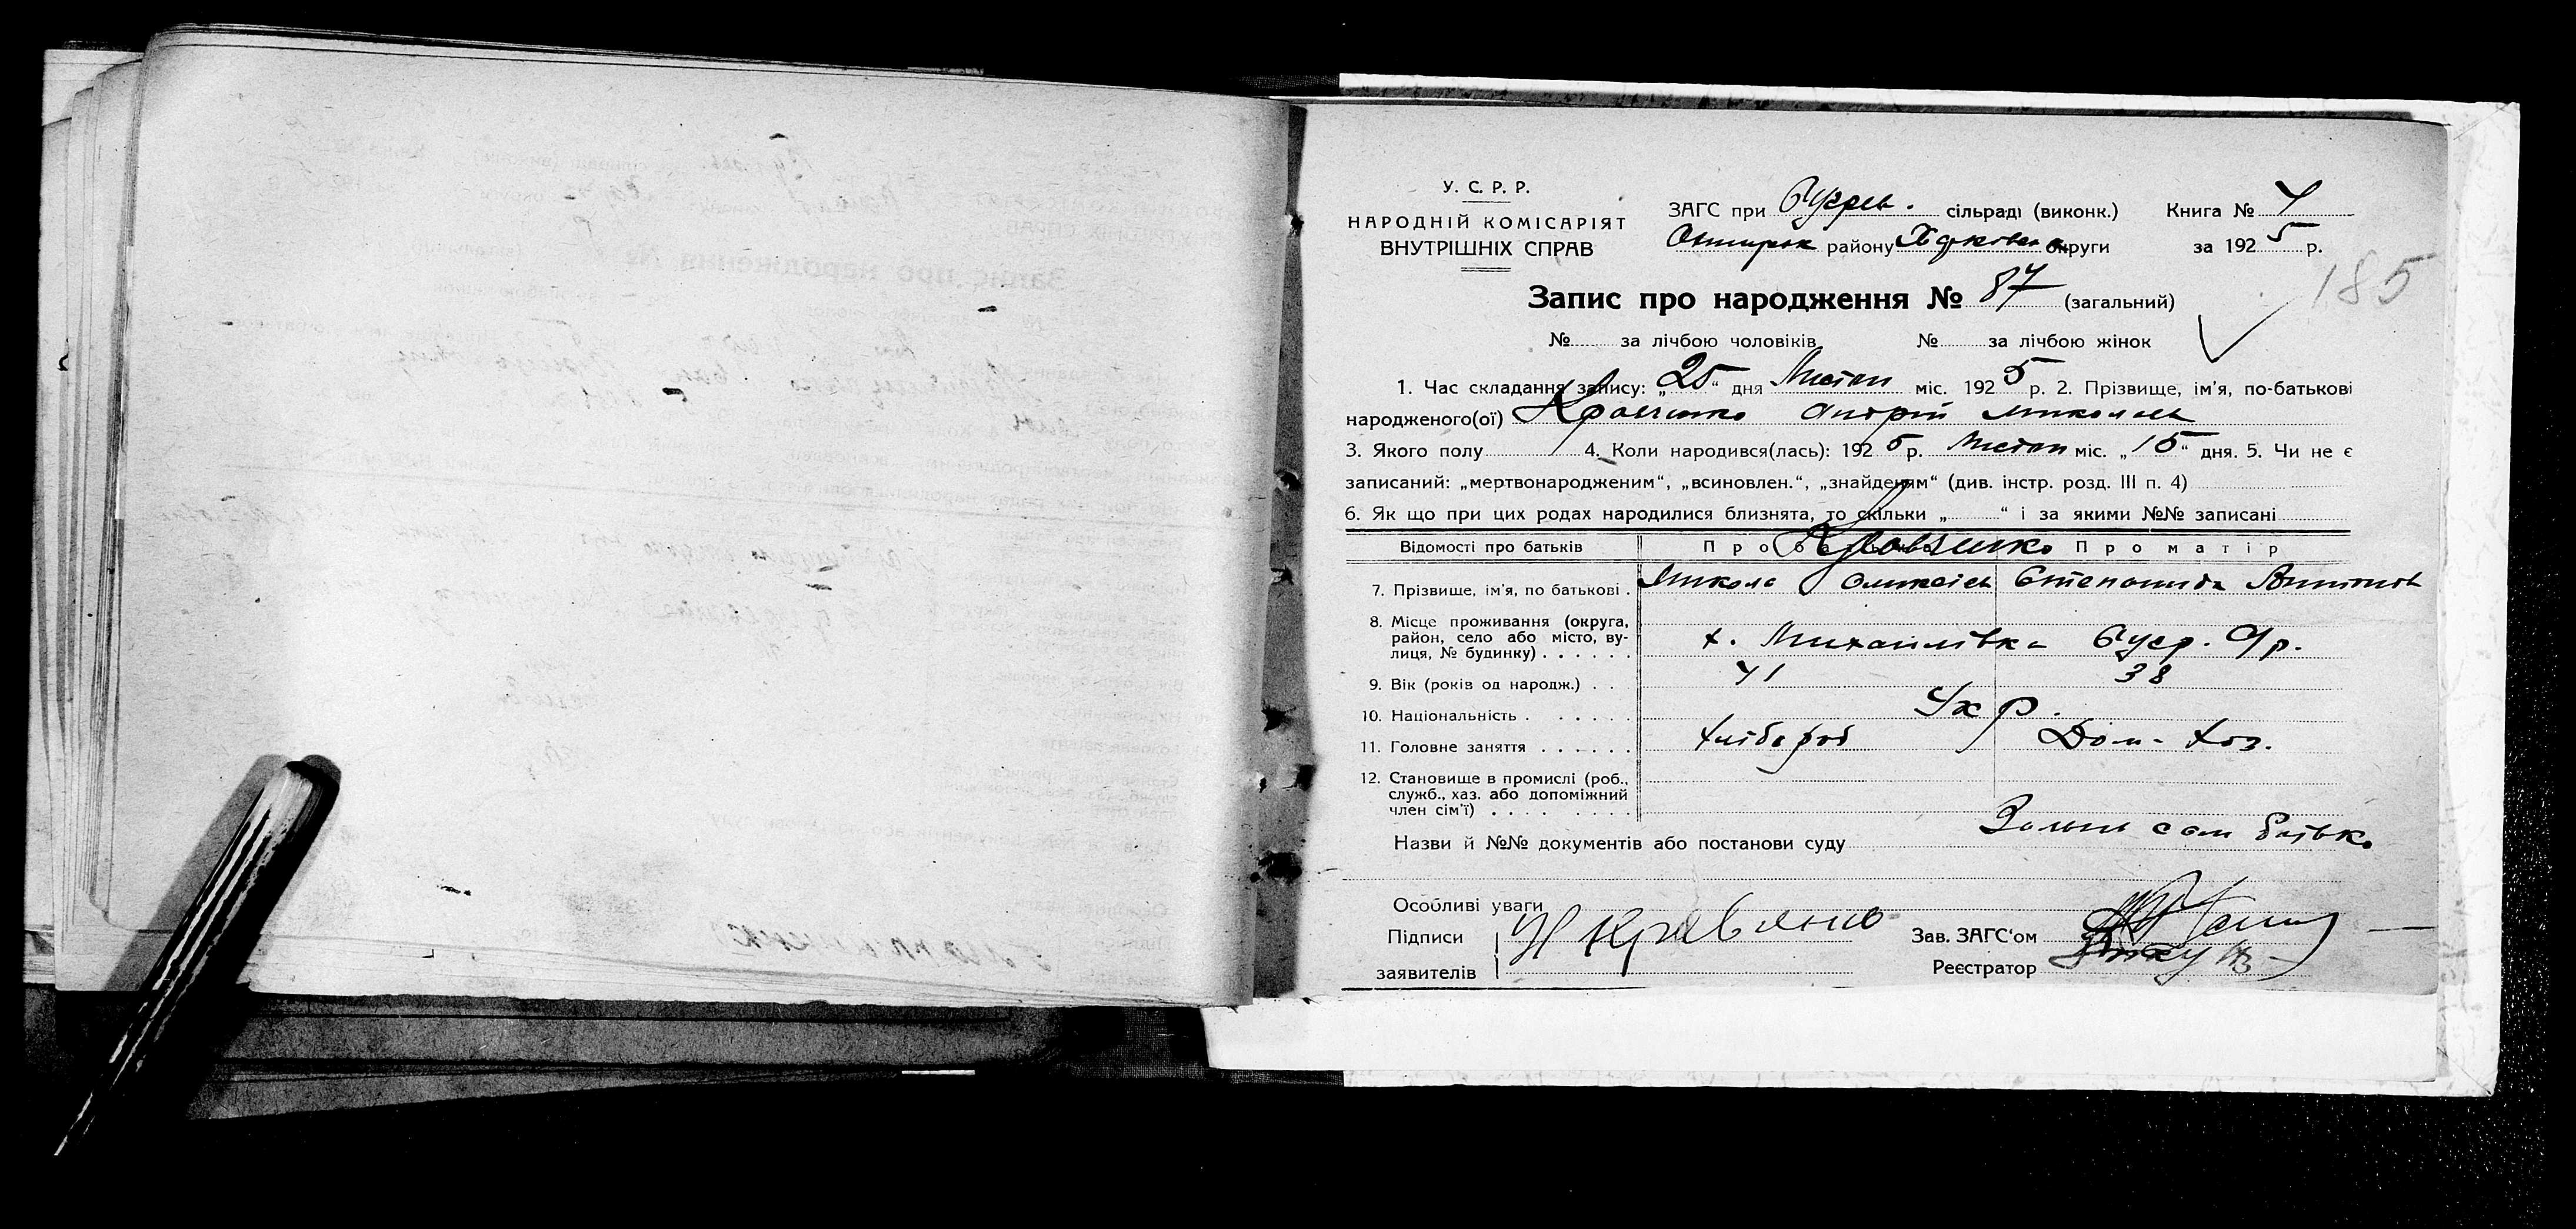 У. С. Р. Р.
НАРОДНІЙ КОМІСАРІЯТ
ВНУТРІШНІХ СПРАВ
ЗАГС при сільраді (виконк.) Книга №
району округи за 1925 р.
185
Запис про народження № 87 (загальний)
№ за лічбою чоловіків № за лічбою жінок
1. Час складання запису: „25“ дня Листоп міс. 1925 р. 2. Прізвище, ім'я, по-батькові
народженого(ої) Кравченко Андрій Миколаєв
3. Якого полу 4. Коли народився(лась): 1925 р. Листоп міс. „15“ дня. 5. Чи не є
записаний: „мертвонародженим“, „всиновлен.“, „знайденям“ (див. інстр. розд. III п. 4)
6. Як що при цих родах народилися близнята, то скільки „ “ і за якими №№ записані
Відомості про батьків Про батька Про матір
Кравченко
7. Прізвище, ім'я, по батькові . Микола Олексієв Степанида
8. Місце проживання (округа,
район, село або місто, ву-
лиця, № будинку) . . . . . . х. Михайлівка
9. Вік (років од народж.) . . 41 38
10. Національність . . . . . . Укр.
11. Головне заняття . . . . . . хлібороб Дом. хоз.
12. Становище в промислі (роб.,
служб., хаз. або допоміжний
член сім'ї) . . . . . . . .
Назви й №№ документів або постанови суду сам батько
Особливі уваги
Підписи
заявителів
Зав. ЗАГС'ом
Реєстратор